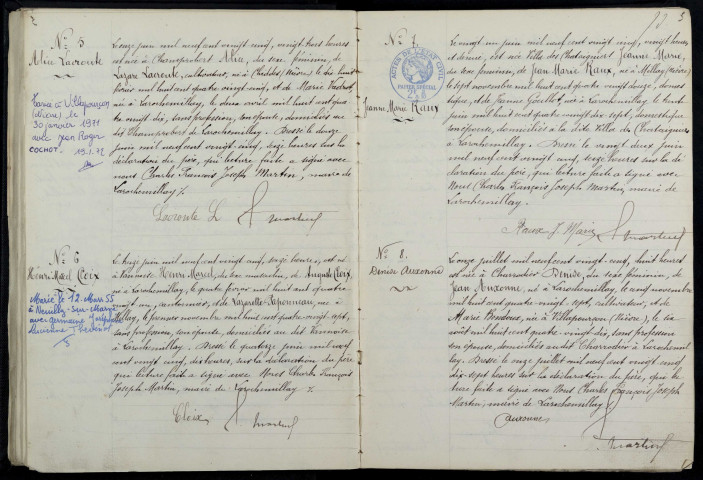 2
N° 5
Alix Lacroute
Marié à Villapourçon
(Nièvre) le
30 janvier 1971
avec Jean Roger
COCHOT. 19.1.72
Le onze juin mil neuf cent vingt cinq, vingt trois heures
est née à Champrobert Alix, du sexe féminin, de
Lazare Lacroute, cultivateur, né à Chides (Nièvre) le dix huit
février mil huit cent quatre vingt cinq, et de Marie
à Larochemillay, le deux avril mil huit cent qua
tre vingt dix, sans profession, son épouse, domiciliés au
dit Champrobert de Larochemillay. Dressé le douze
juin mil neuf cent vingt cinq, seize heures sur la
déclaration du père, qui lecture faite a signé avec
nous Charles François Joseph Martin, maire de
Larochemillay %.
Lacroute L Martin
N° 6
Henri Marcel Cloix
Marié le 12 Mars 55
à Neuilly-sur-Marne
avec Germaine
Le treize juin mil neuf cent vingt cinq, seize heures, est né
à Henri Marcel, du sexe masculin, de Auguste Cloix,
né à Larochemillay, le quatre février mil huit cent quatre
vingt un, et de Lazarette né à
Millay, le premier novembre mil huit cent quatre vingt sept,
sans profession, son épouse, domiciliés au dit
à Larochemillay. Dressé le quatorze juin mil neuf
cent vingt cinq, dix heures, sur la déclaration du père
qui lecture faite a signé avec Nous Charles François
Joseph Martin, maire de Larochemillay %.
Cloix Martin
3
N° 7
Jeanne Marie Raux
ACTES DE L'ETAT CIVIL
PAPIER SPECIAL
Le vingt un juin mil neuf cent vingt cinq, vingt heures
et demie, est née Ville des Chataigniers Jeanne Marie,
du sexe féminin, de Jean Marie Raux, né à Millay (Nièvre)
sept novembre mil huit cent quatre vingt douze, domes
tique, et de Jeanne né à Larochemillay, le trente
juin mil huit cent quatre vingt dix sept, domestique
son épouse, domiciliés à la dite Ville des Chataigniers
à Larochemillay. Dressé le vingt deux juin
mil neuf cent vingt cinq, seize heures sur la dé
claration du père, qui lecture faite a signé avec
Nous Charles François Joseph Martin, maire de
Larochemillay.
Raux J. Marie Martin
N° 8.
Denise Auxonne
Le onze juillet mil neuf cent vingt cinq, huit heures
est née à Denise, du sexe féminin, de
Jean Auxonne, né à Larochemillay, le neuf novembre
mil huit cent quatre vingt sept, cultivateur, et de
Marie née à Villapourçon (Nièvre), le six
août mil huit cent quatre vingt dix, sans profession
son épouse, domiciliés au dit de Larochemil
lay. Dressé le onze juillet mil neuf cent vingt cinq
dix sept heures sur la déclaration du père, qui lec
ture faite a signé avec Nous Charles François Joseph
Martin, maire de Larochemillay.
Auxonne
Martin